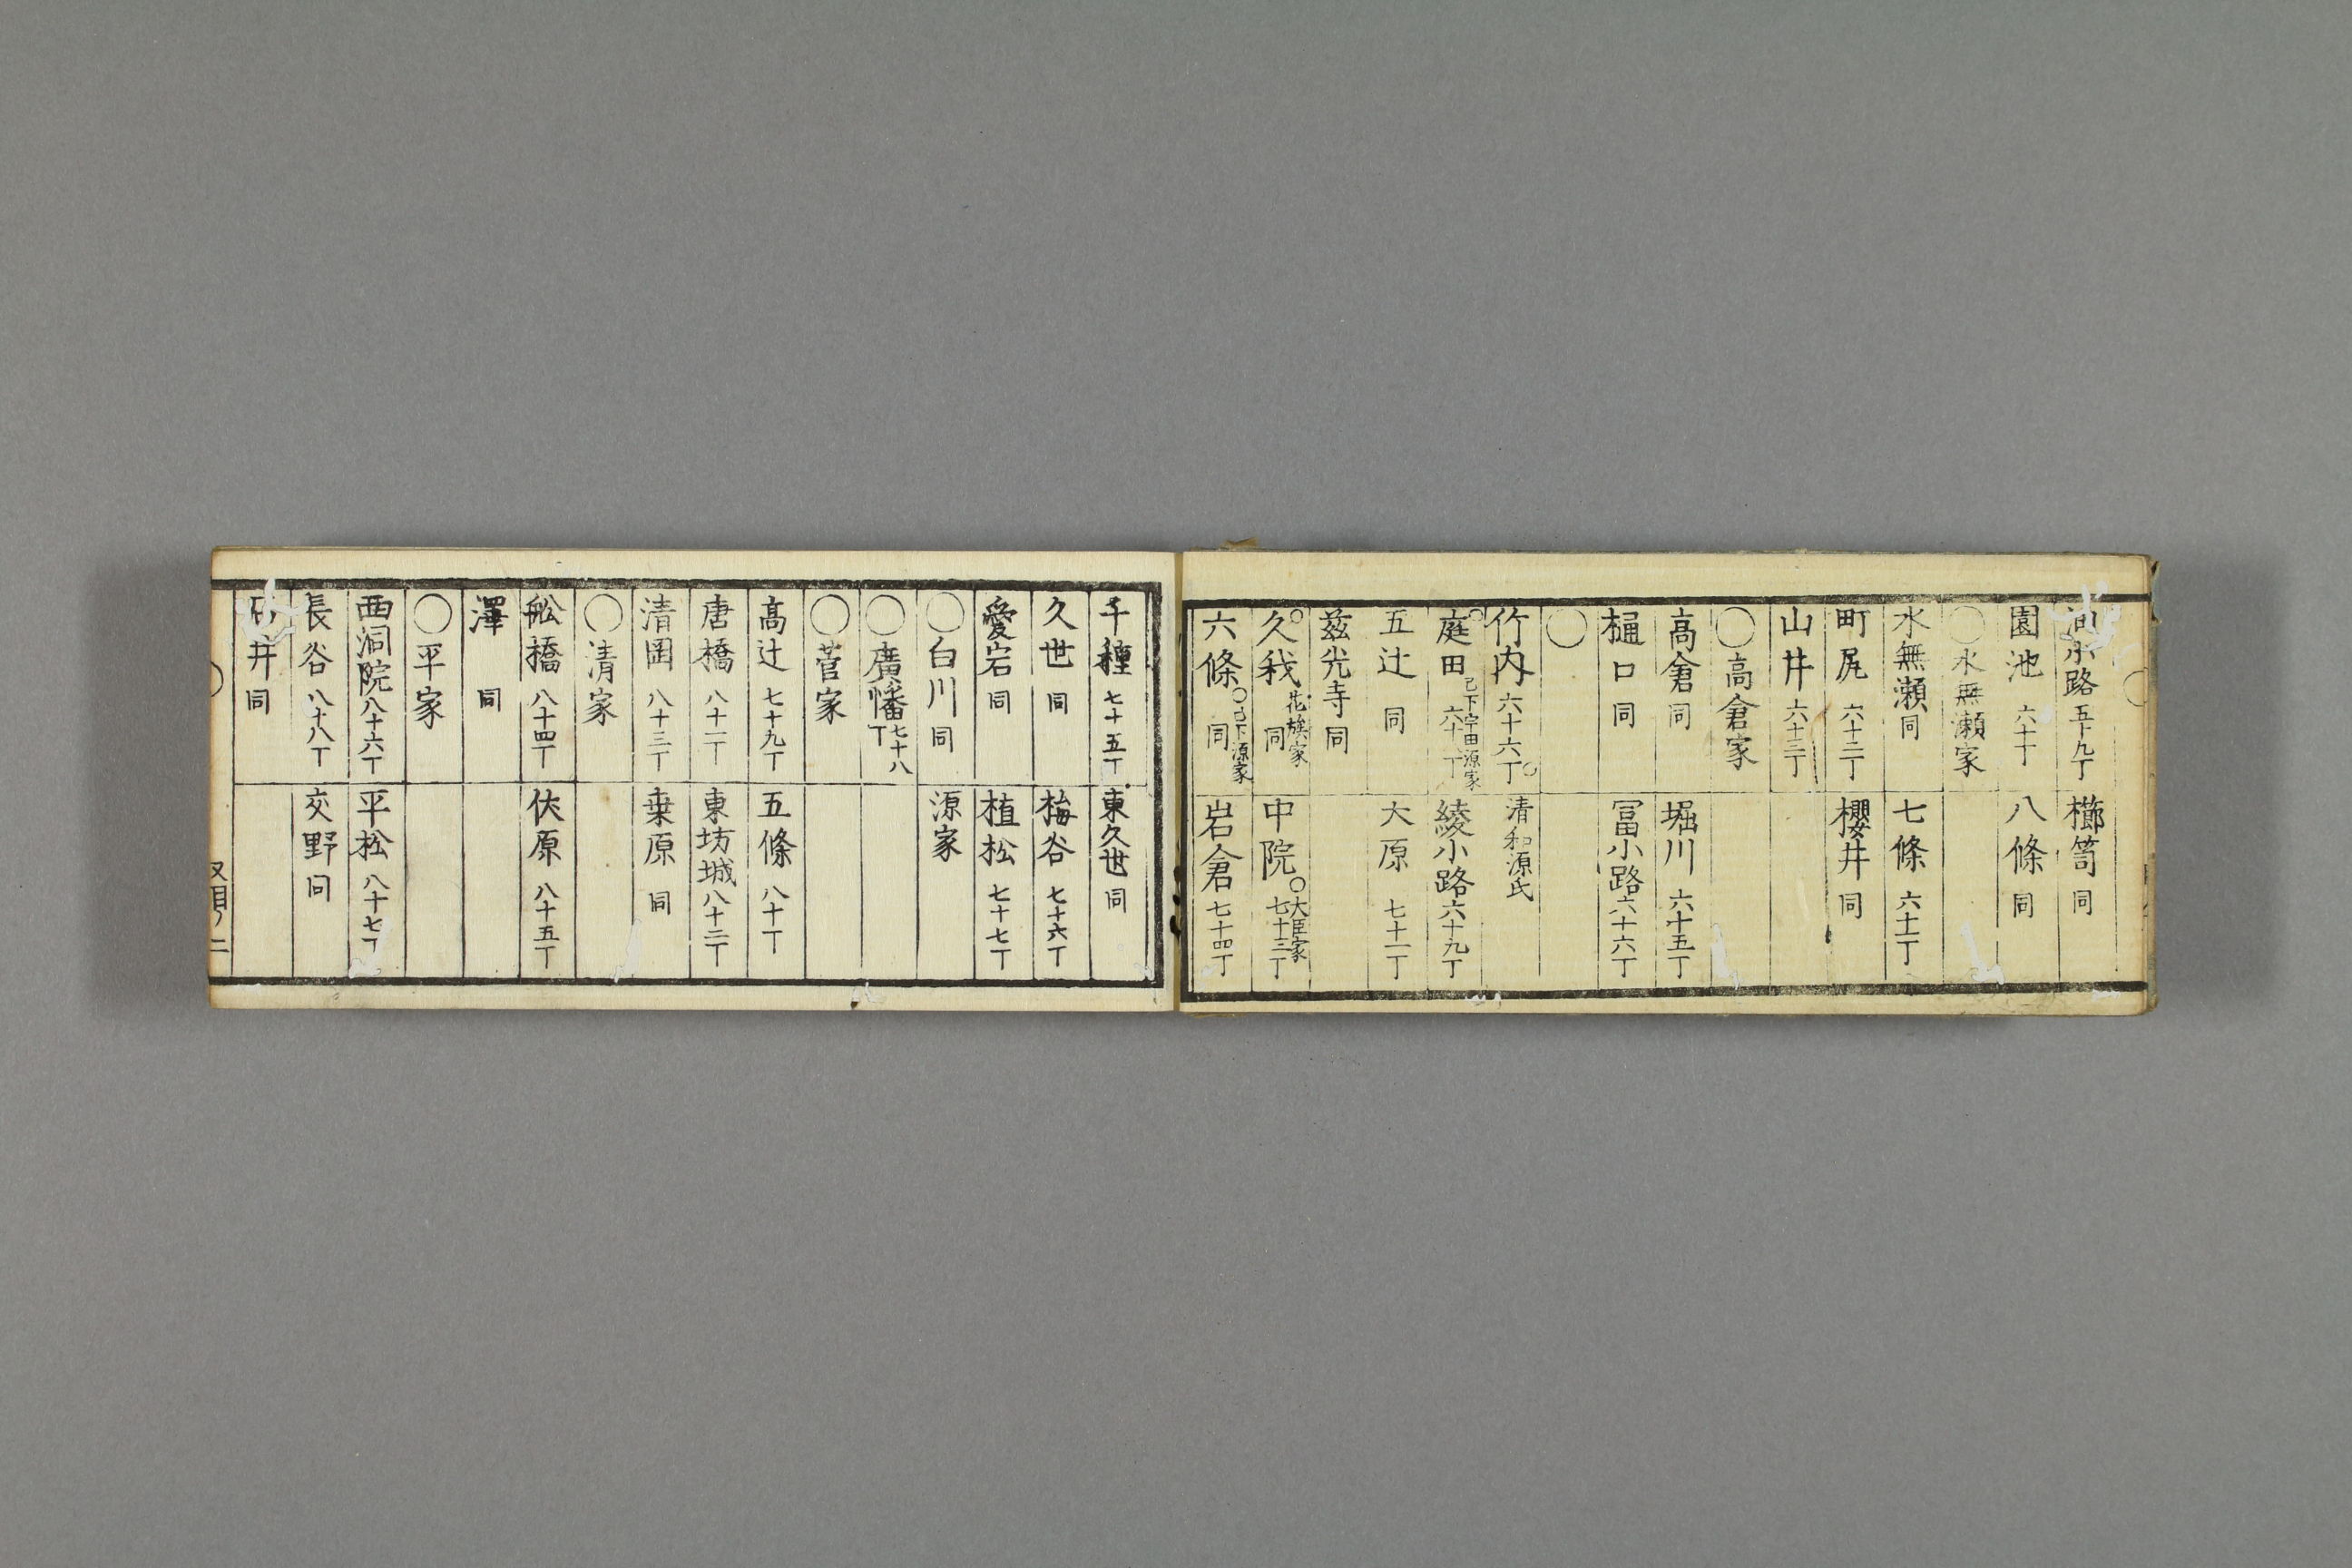 小路 五十九丁 櫛笥 同
園池 六十丁 八條 同
〇水無瀬家
水無瀬 同 七條 六十一丁
町尻 六十二丁 櫻井 同
山井 六十三丁
〇高倉家
高倉 同 堀川 六十五丁
樋口 同 冨小路 六十六丁
〇
竹内 六十六丁 〇清和源氏
庭田 〇已下宇田源家 六十丁 綾小路 六十九丁
五辻 同 大原 七十一丁
茲光寺 同
久我 〇花族家 同 中院 〇大臣家 七十三丁
六條 〇已下源家 同 岩倉 七十四丁
千種 七十五丁 東久世 同
久世 同 梅谷 七十六丁
愛宕 同 植松 七十七丁
〇白川 同 源家
〇廣幡 七十八丁
〇菅家
高辻 七十九丁 五條 八十丁
唐橋 八十一丁 東坊城 八十二丁
清岡 八十三丁 桒原 同
〇清家
舩橋 八十四丁 伏原 八十五丁
澤 同
〇平家
西洞院 八十六丁 平松 八十七丁
長谷 八十八丁 交野 同
井 同